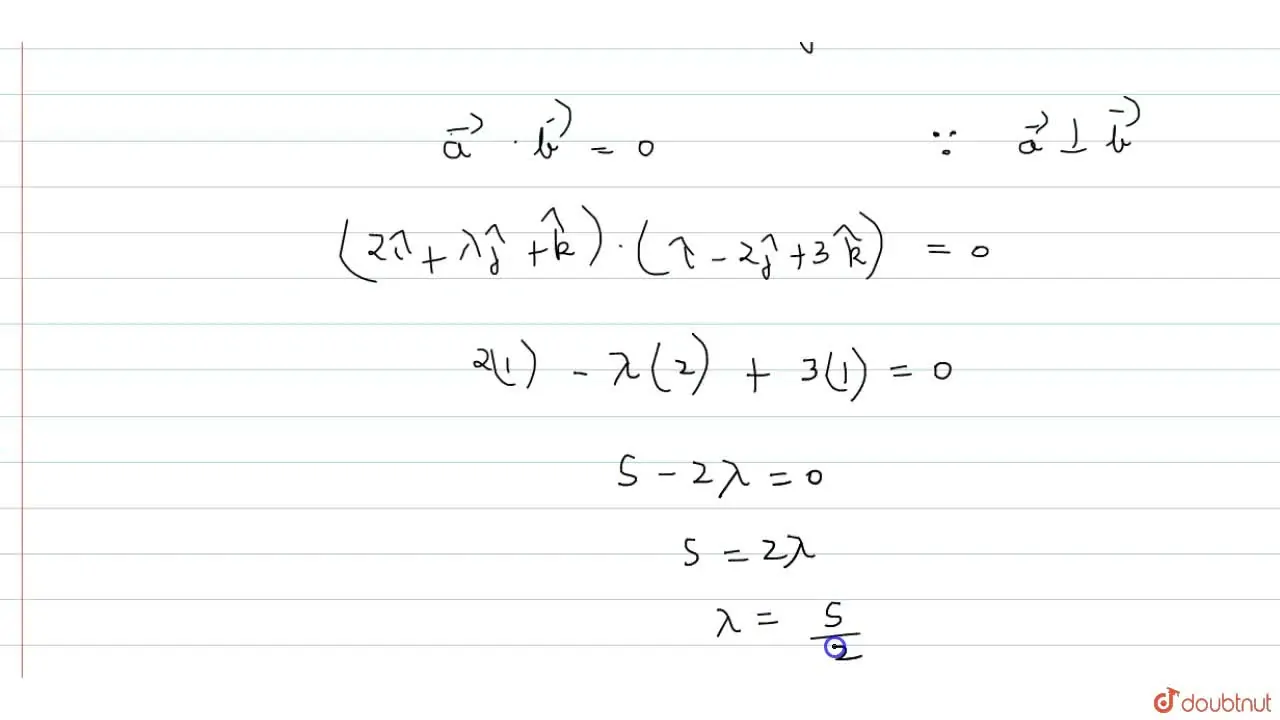 a⃗ · b⃗ = 0 ∵ a⃗ ⊥ b⃗
(2î + λĵ + k̂) · (î - 2ĵ + 3k̂) = 0
2(1) - λ(2) + 3(1) = 0
5 - 2λ = 0
5 = 2λ
λ = 5/2
doubtnut